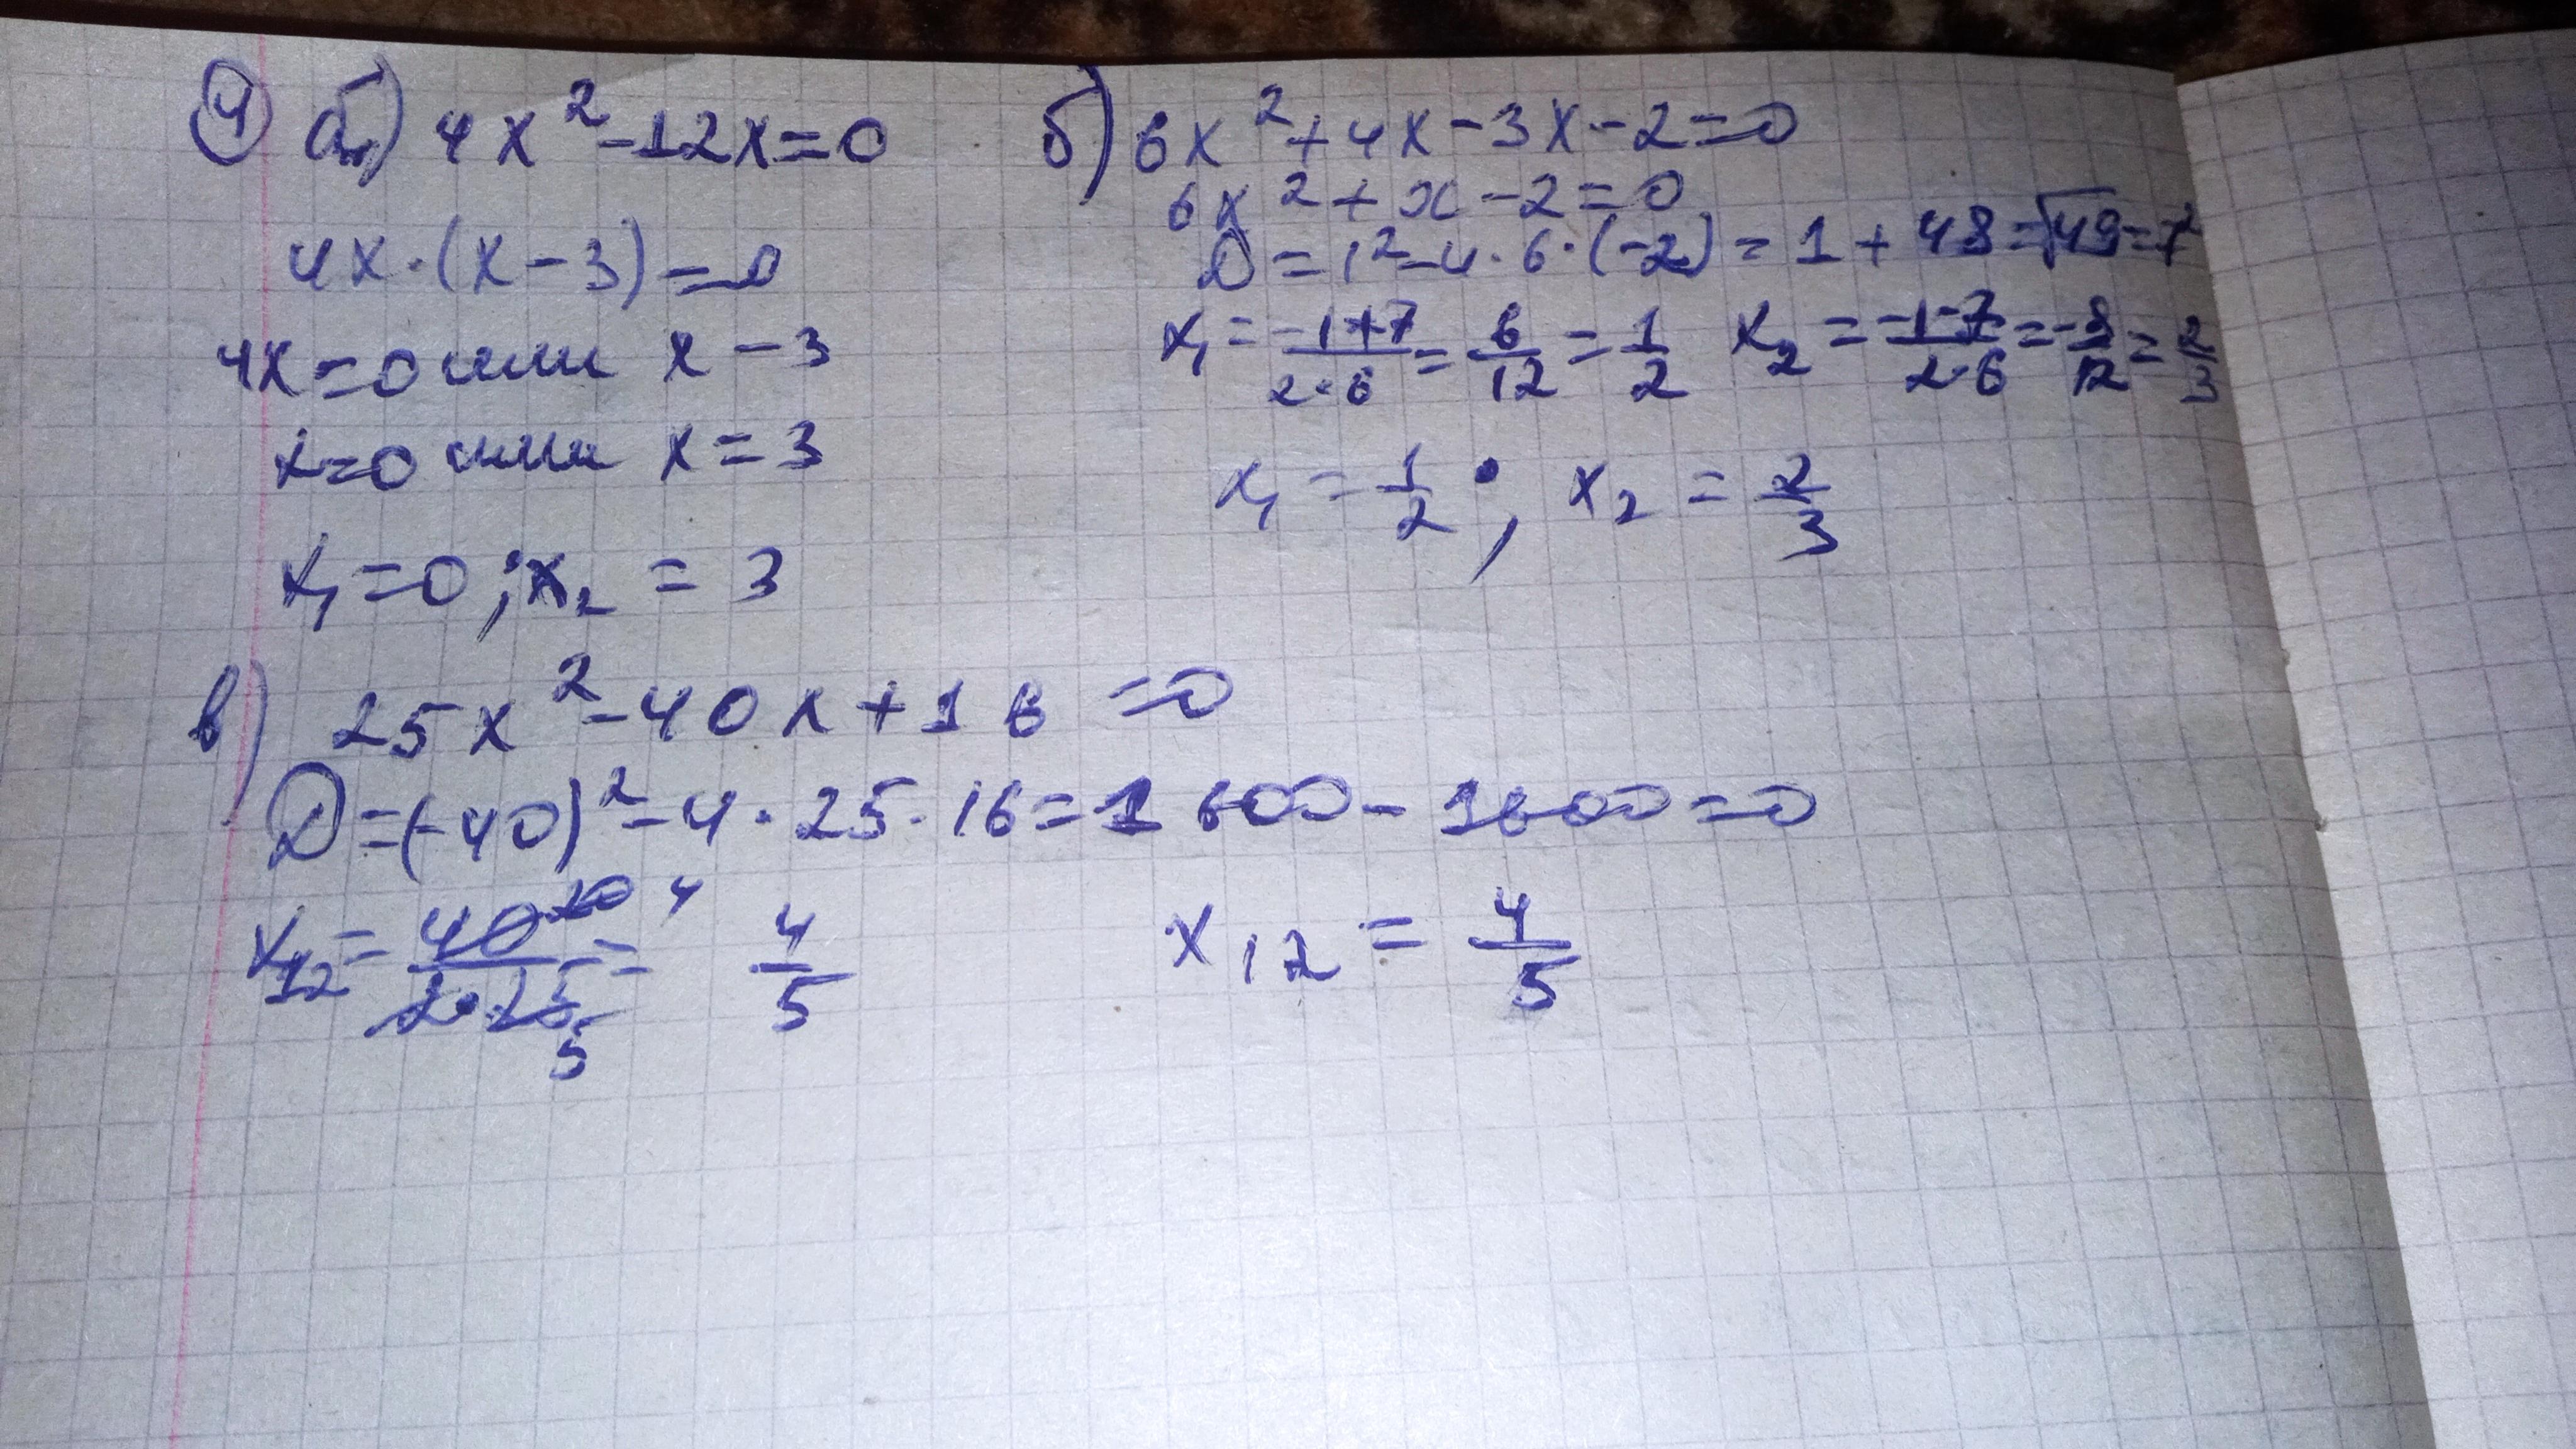 4 а) 4x² - 12x = 0
4x · (x - 3) = 0
4x = 0 или x - 3
x = 0 или x = 3
x₁ = 0 ; x₂ = 3
б) 6x² + 4x - 3x - 2 = 0
6x² + x - 2 = 0
D = 1² - 4 · 6 · (-2) = 1 + 48 = √49 = 7
x₁ = (-1+7)/(2·6) = 6/12 = 1/2 x₂ = (-1-7)/(2·6) = -8/12 = 2/3
x₁ = 1/2 ; x₂ = 2/3
в) 25x² - 40x + 16 = 0
D = (-40)² - 4 · 25 · 16 = 1600 - 1600 = 0
x₁₂ = 40 20 4/(2·25 5) = 4/5 x₁₂ = 4/5